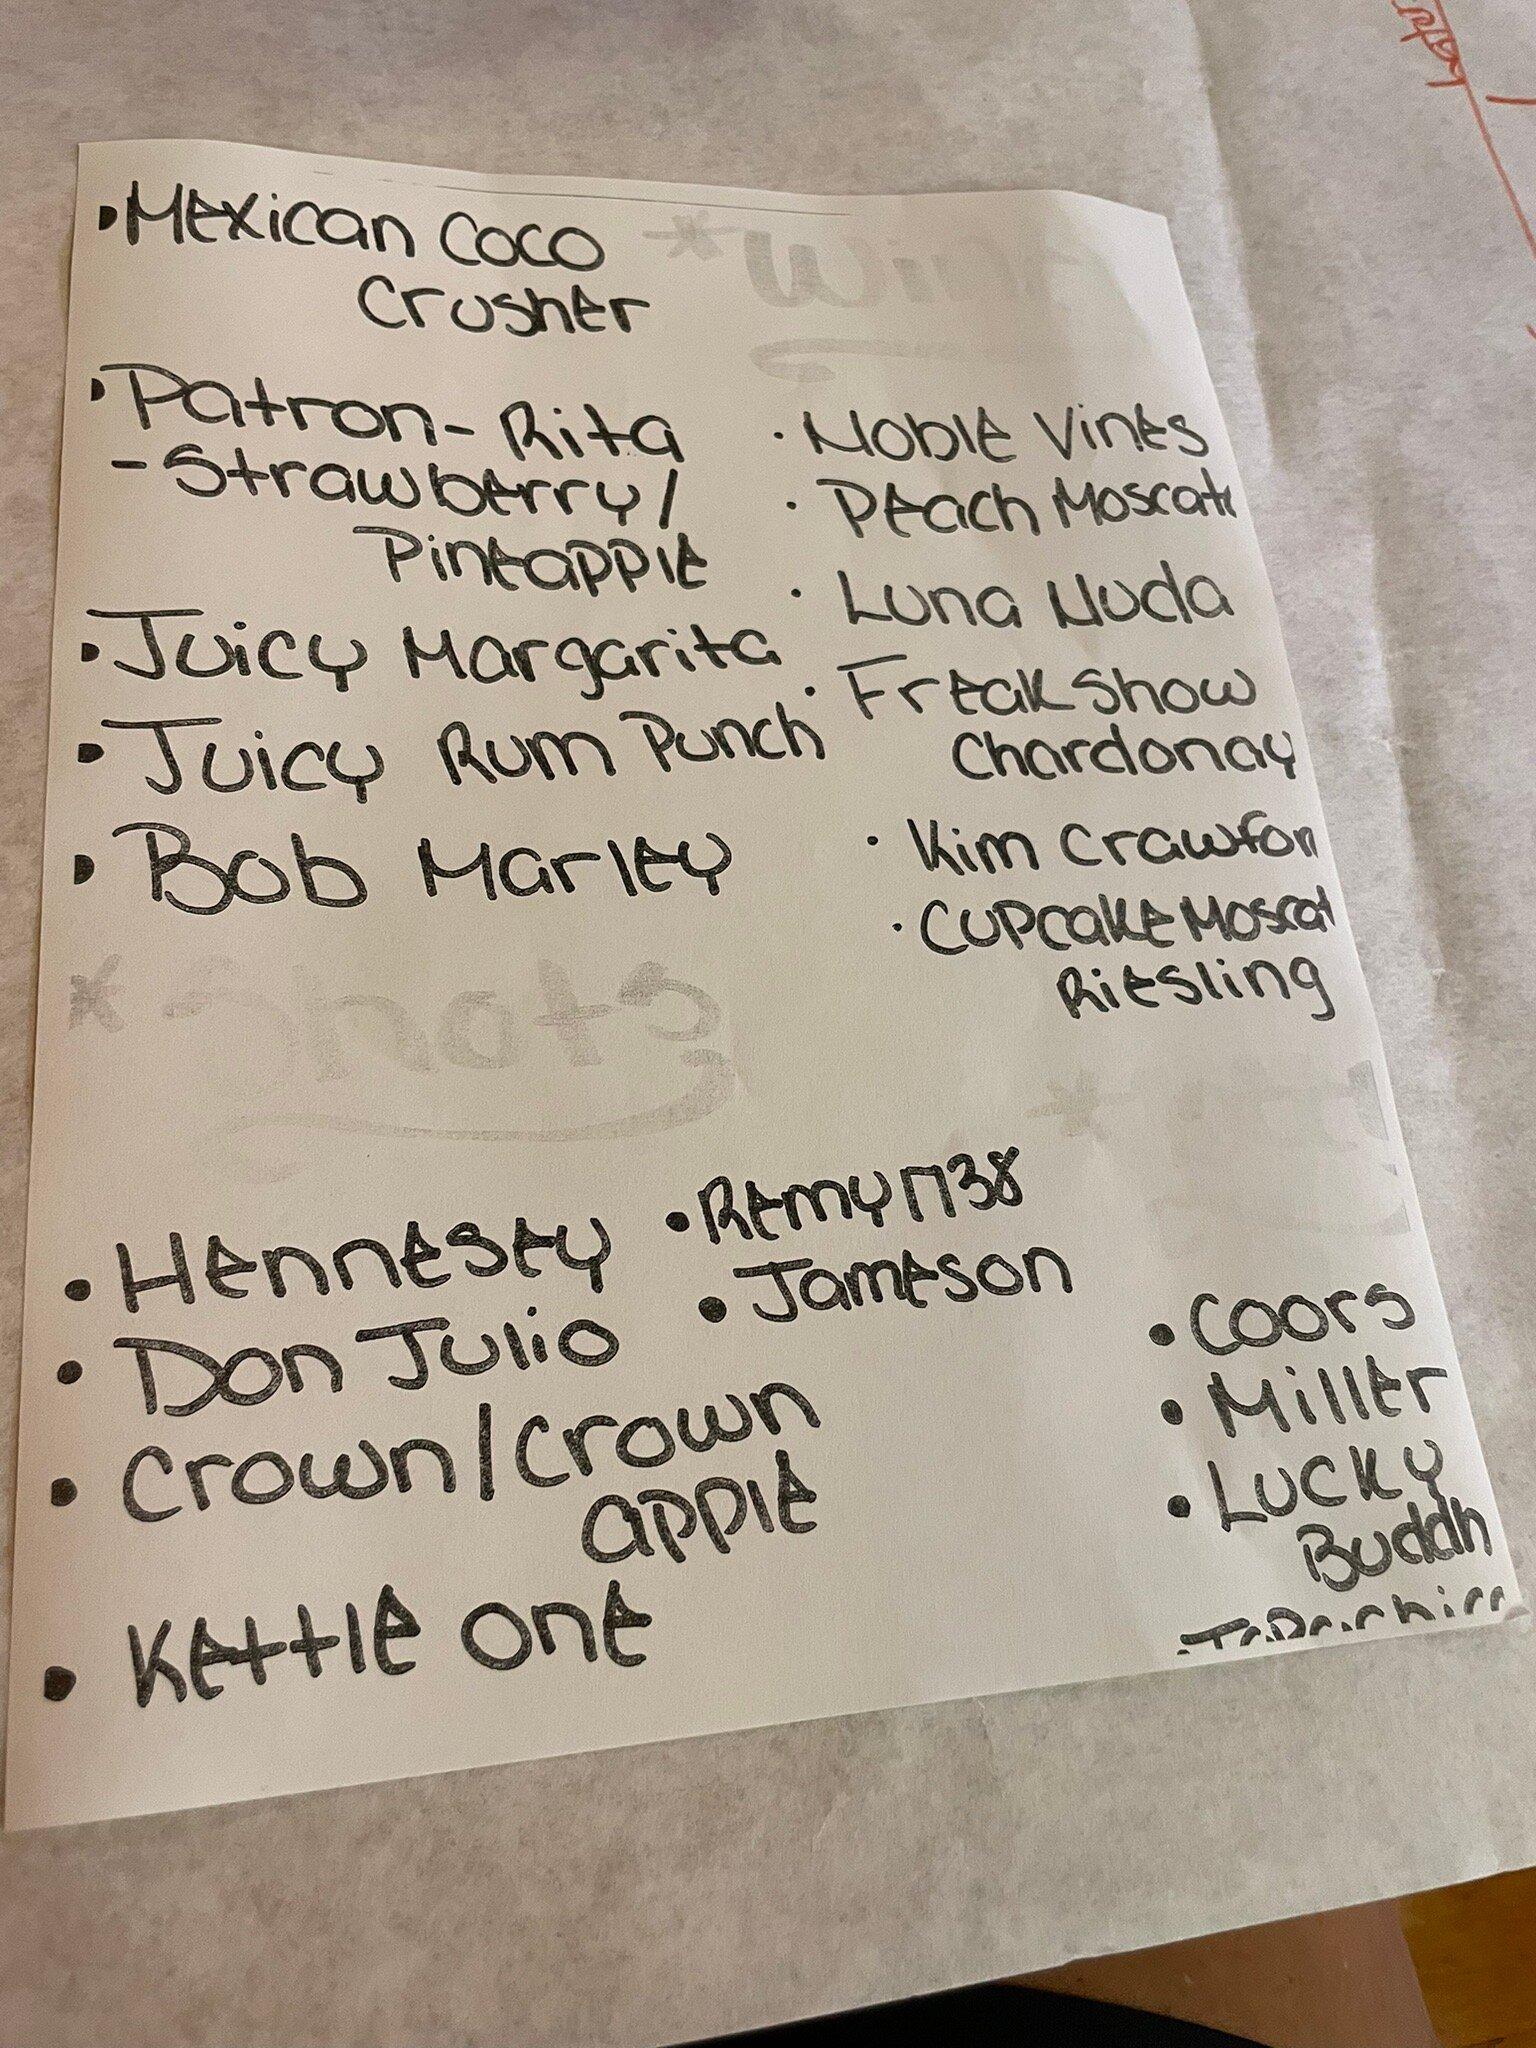 Mexican Coco
Crusher
Patron-Rita
-Strawberry/
Pineapple
Juicy Margarita
Juicy Rum Punch
Bob Marley
Noble Vines
Peach Moscat
Luna Nuda
Freakshow
Chardonay
Kim Crawfor
Cupcake Moscat
Riesling
Hennesey
Don Julio
Crown/Crown
apple
Kettle One
Remy 1738
Jameson
Coors
Miller
Lucky
Buddh